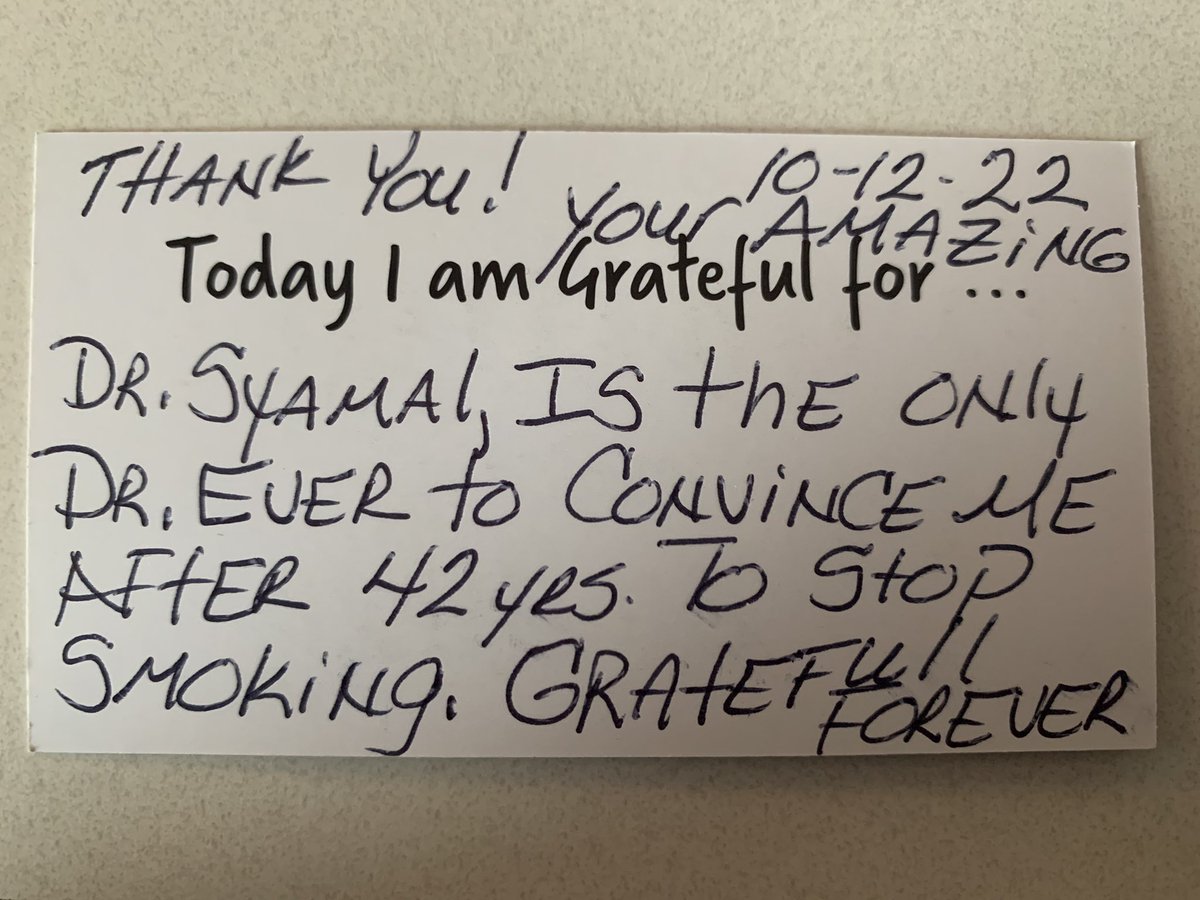 THANK YOU! 10-12-22
Your AMAZiNG
Today I am Grateful for ...
DR. SYAMAl, IS thE ONly
DR. EVER to CONViNCE ME
AFtER 42 yRS. To StOP
SMOKiNg. GRAtEFull
FOREVER